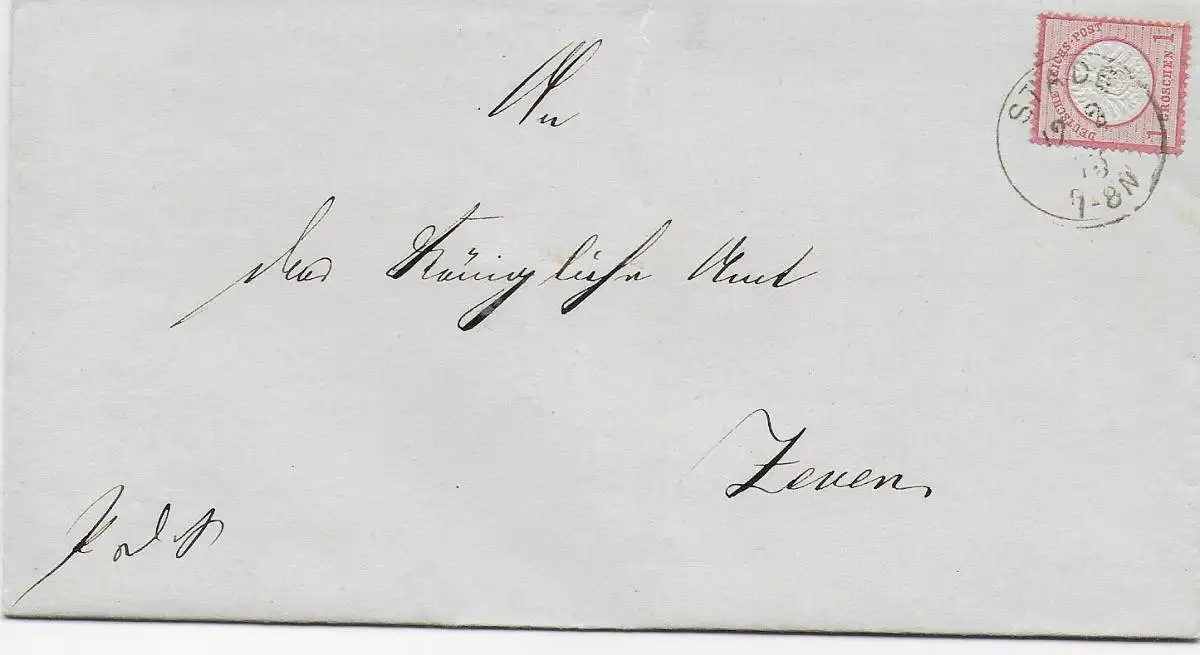 DEUTSCHE REICHS-POST
1 GROSCHEN 1
STADE
12 2
73
7-8N
An
das Königliche Amt
Zeven